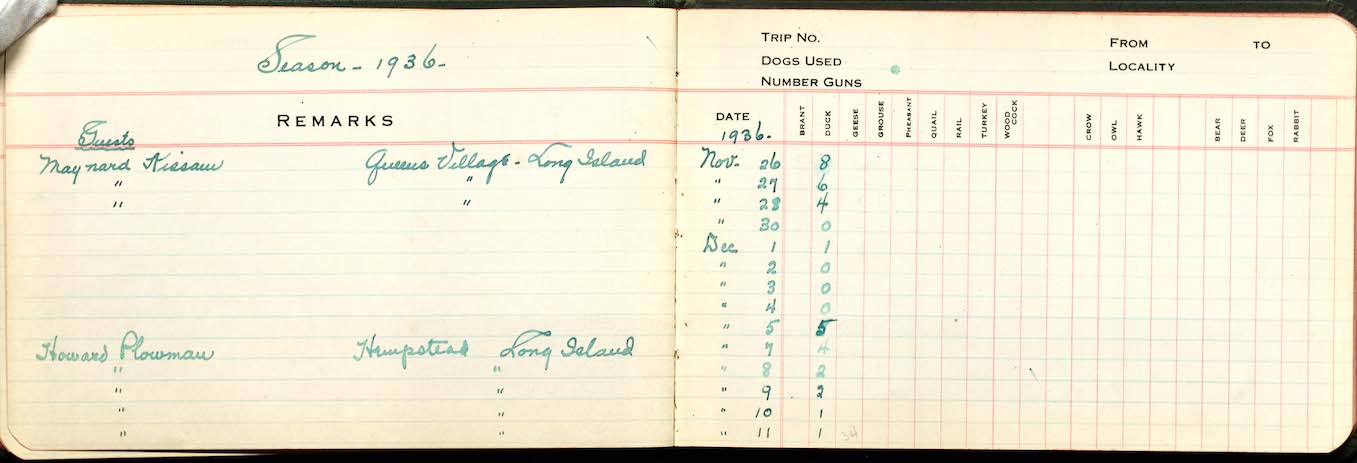 Season - 1936 -
REMARKS
Guests
Maynard Nissam Queens Village - Long Island
" "
" "
Howard Plowman Hempstead Long Island
" "
" "
" "
" "
TRIP NO. FROM TO
DOGS USED LOCALITY
NUMBER GUNS
DATE BRANT DUCK GEESE GROUSE PHEASANT QUAIL RAIL TURKEY WOOD COCK CROW OWL HAWK BEAR DEER FOX RABBIT
1936.
Nov. 26 8
" 27 6
" 28 4
" 30 0
Dec 1 1
" 2 0
" 3 0
" 4 0
" 5 5
" 7 4
" 8 2
" 9 2
" 10 1
" 11 1 34